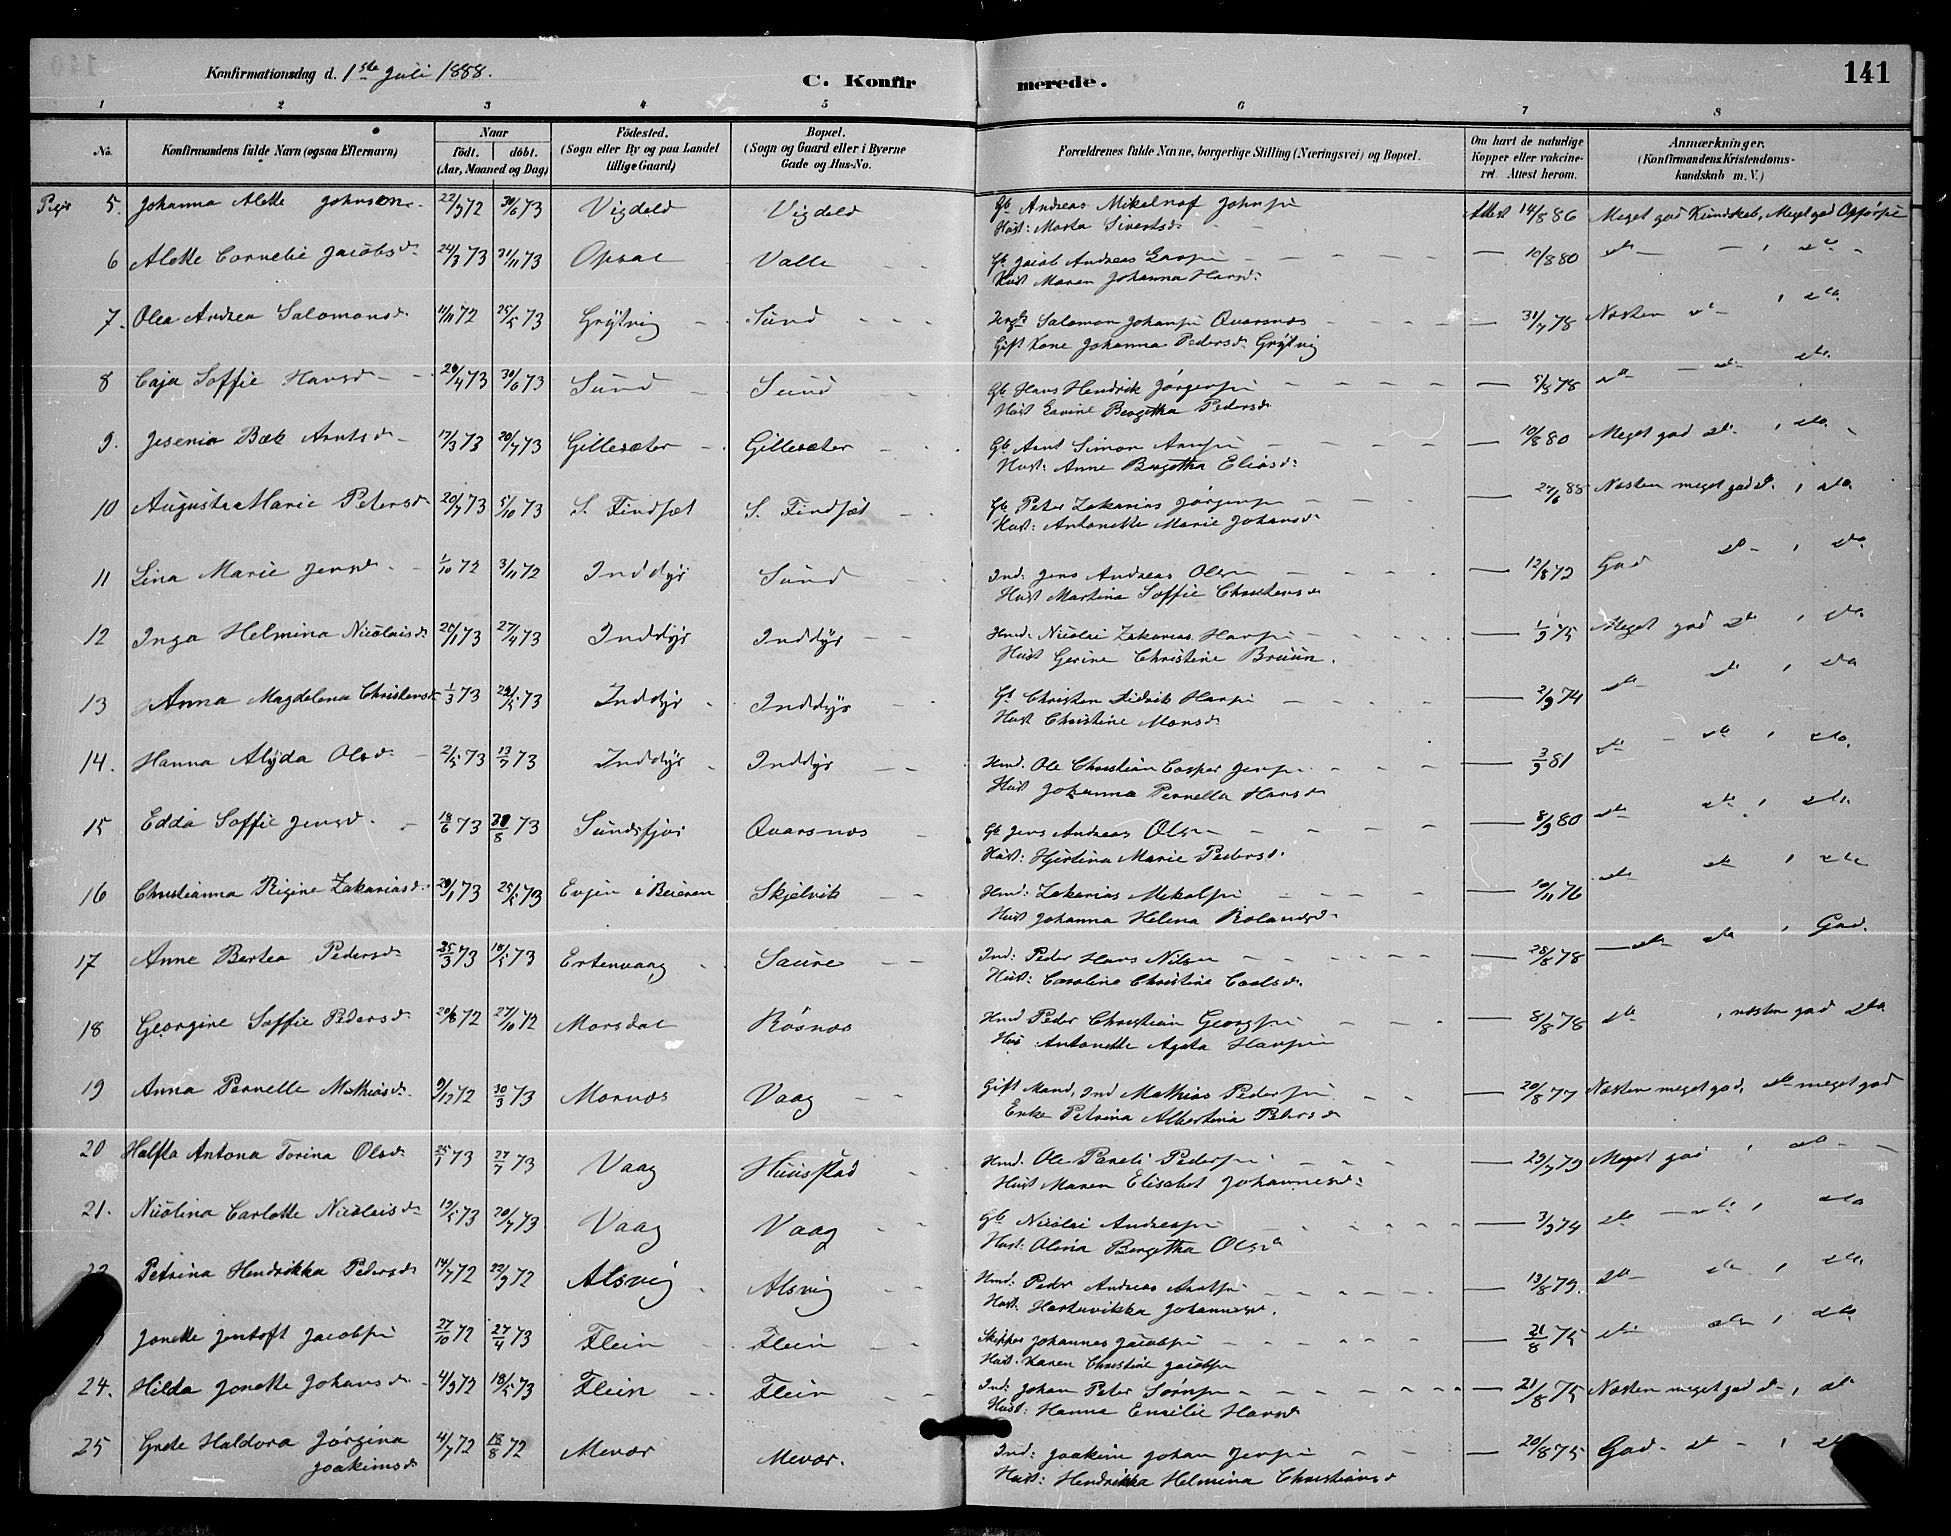 141
Konfirmationsdag d. 1ste Juli 1888.
C. Konfirmerede.
1 2 3 4 5 6 7 8
No. Konfirmandens fulde Navn (ogsaa Efternavn) Naar födt. döbt. (Aar, Maaned og Dag) Födested. (Sogn eller By og paa Landet tillige Gaard) Bopæl. (Sogn og Gaard eller i Byerne Gade og Hus-No. Forældrenes fulde Navne, borgerlige Stilling (Næringsvei) og Bopæl. Om havt de naturlige Kopper eller vakcineret. Attest herom. Anmærkninger. (Konfirmandens Kristendomskundskab m. V.)
Piger 5. Johanna Alette Johnsen 22/9 72 30/6 73 Vigdeld Vigdeld Gb Andreas Mikelnof Johnsen Attest 14/8 86 Meget god Kundskab, Meget god Opførsel
Hust: Marta Sivertsd.
6 Alette Cornelie Jacobsd. 24/3 73 21/11 73 Opsal Valle Gb Jacob Andreas — 10/8 80 dto — , dto
Hust Maren Johanna Hansd.
7. Olea Andrea Salomonsd. 11/11 72 25/5 73 Grytvig Sund Salomon Johansen Qvarsnæs — 31/7 78 Næsten dto , dto.
Gift Kone Johanna Pedersd. Grytvig
8 Caja Soffie Hansd. 20/4 73 30/6 73 Sund Sund Gb Hans Hendrik Jørgensen — 5/8 78 dto — dto dto.
Hust Bergetha Pedersd.
9. Jesenia Bæk Arntsd. 17/3 73 20/7 73 Gillesæter Gillesæter Gb Arnt Simon — 10/8 80 Meget god dto , dto
Hust: Anne Bergetha Eliasd.
10 Augusta Marie Petersd. 20/7 73 5/10 73 S. Findset S. Findset Gb Peter Zakarias Jørgensen — 27/6 88 Næsten meget god dto , dto.
Hust: Antonette Marie Johansd.
11 Lina Marie Jensd. 1/10 72 3/11 72 Inddyr Sund Ind: Jens Andreas Olsen — 12/8 72 God dto , dto
Hust Martina Soffie Christensd.
12 Inga Helmina Nicolaisd. 20/1 73 27/4 73 Inddyr Inddyr Hmd: Nicolai Zakarias Hansen — 1/9 75 Meget god dto , dto
Hust Gerine Christine Bruun.
13 Anna Magdelena Christensd. 1/3 73 22/5 73 Inddyr Inddyr Gb Christen Didrik Hansen — 2/9 74 dto dto , dto
Hust Christine Monsd.
14. Hanna Alyda Olsd. 2/5 73 13/7 73 Inddyr Inddyr Hmd. Ole Christian Casper Jensen — 3/9 81 dto — dto , dto.
Hust Johanna Pernella Hansd.
15 Edda Soffie Jensd. 18/6 73 31/8 73 Sundsfjor Qvarsnæs Gb Jens Andreas Olsen — 8/9 80 dto dto , dto
Hust: Hjertina Marie Pedersd.
16 Christianna Rigine Zakariasd. 20/1 73 25/5 73 Evjen i Beieren Skjelvik Hmd: Zakarias Mekalsen — 10/11 76 dto dto , dto
Hust Johanna Helena Rolandsd.
17 Anne Bertea Pedersd. 25/3 73 18/5 73 Ertenvaag Saure Ind: Peder Hans Nilsen — 28/8 78 — dto dto , God.
Hust: Caroline Christine Carlsd.
18 Georgine Soffie Pedersd. 20/8 72 27/10 72 Morsdal Røsnæs Hmd Peder Christian Georgsen — 8/8 78 dto , næsten god dto
Hus Antonette Agata Hansen
19 Anna Pernelle Mathiasd. 9/12 72 30/3 73 Mornæs Vaag Gift Mand, Ind Mathias Pedersen — 20/8 77 Næsten meget god, dto meget god
Enke Petrina Albertina Petersd.
20 Halfta Antona Torina Olsd. 25/1 73 27/7 73 Vaag Huusstad Hmd. Ole Pareli Pedersen — 29/7 79 Meget god , dto —
Hust Maren Elisabet Johannesd.
21. Nicolina Carlotte Nicolaisd. 19/5 73 20/7 73 Vaag Vaag Gb Nicolai Andreasen — 3/9 74 dto — dto , dto
Hust: Olina Bergetha Olsd.
22 Petrina Hendrikka Pedersd. 14/7 72 22/9 72 Alsvig Alsvig Hmd: Peder Andreas — 13/8 79. dto dto , dto
Hust. Johannesd.
Jonette Jentoft Jacobsen 27/10 72 27/4 73 Flein Flein Skipper Johannes Jacobsen — 21/8 75 dto dto , dto.
Hust. Karen Christine Jacobsen
24. Hilda Jonette Johansd. 4/9 72 18/5 73 Flein Flein Ind: Johan Peter Sørnsen — 21/8 75 Næsten meget god dto , dto
Hust: Hanna Emelie Hansd.
25 Grete Haldora Jørgina 4/7 72 18/8 72 Mevær Mevær. Ind: Joakim Johan Jensen — 20/8 75 God — dto — , dto
Joakimsd. Hust: Hendrikka Helmina Christiansd.